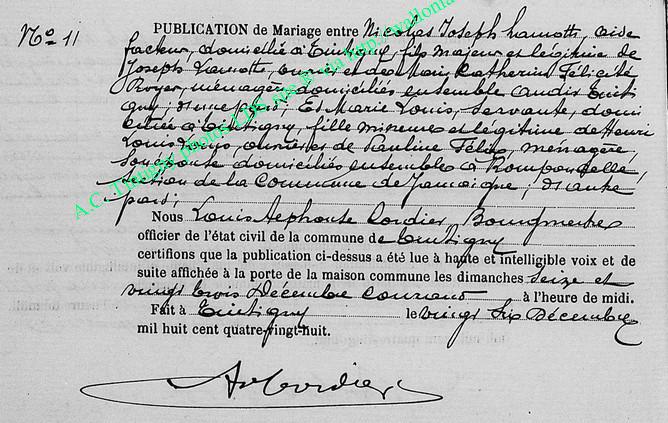 No 11
PUBLICATION de Mariage entre Nicolas Joseph Lamotte, aide
facteur, domicilié à Tintigny, fils majeur et légitime de
Joseph Lamotte, ouvrier et de Marie Catherine Félicité
Royer, ménagère, domiciliés ensemble audit Tinti
gny; d'une part; Et Marie Louis, servante, domi
ciliée à Tintigny, fille mineure et légitime de Henri
Louis, ouvrier et de Pauline, ménagère,
son épouse, domiciliés ensemble à Romponcelle,
section de la Commune de Jamoigne; d'autre
part;
Nous Louis Alphonse Cordier, Bourgmestre
officier de l'état civil de la commune de Tintigny
certifions que la publication ci-dessus a été lue à haute et intelligible voix et de
suite affichée à la porte de la maison commune les dimanches seize et
vingt trois Décembre courant à l'heure de midi.
Fait à Tintigny le vingt six Décembre
mil huit cent quatre-vingt-huit.
Cordier
A.C. Tintigny, photos http://wallonia